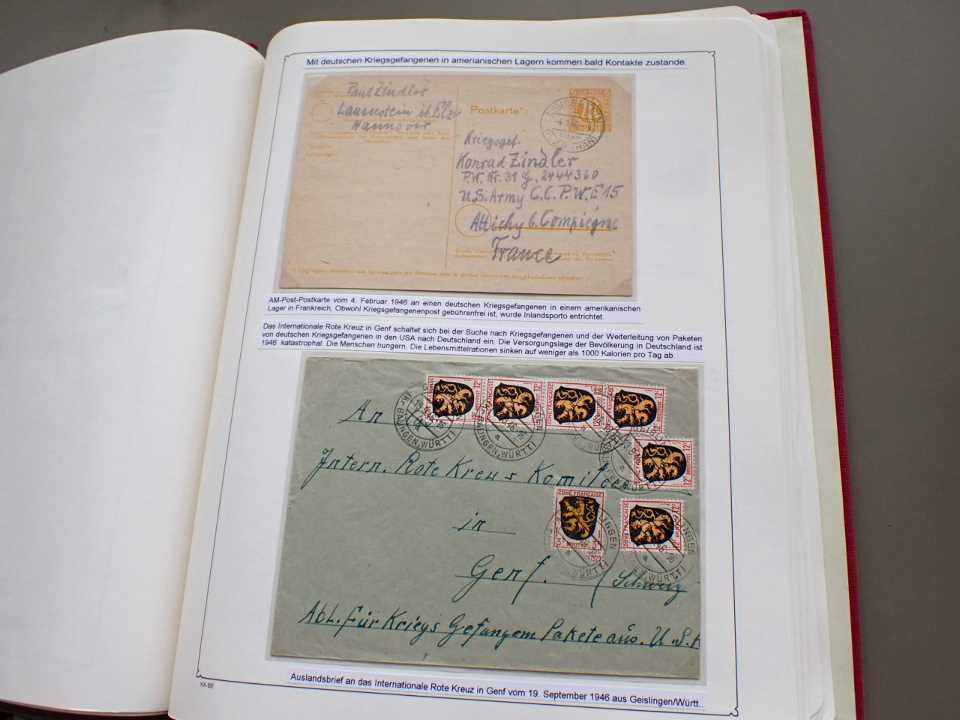 Mit deutschen Kriegsgefangenen in amerianischen Lagern kommen bald Kontakte zustande.
Paul Zindler
Lauenstein
Hannover
Postkarte
Kriegsgef.
Konrad Zindler
P.W. Nr. 31 G, 2444360
U.S. Army C.C.P.W.E 15
Attichy b. Compiegne
France
AM-Post-Postkarte vom 4. Februar 1946 an einen deutschen Kriegsgefangenen in einem amerikanischen
Lager in Frankreich. Obwohl Kriegsgefangenenpost gebührenfrei ist, wurde Inlandsporto entrichtet.
Das Internationale Rote Kreuz in Genf schaltet sich bei der Suche nach Kriegsgefangenen und der Weiterleitung von Paketen
von deutschen Kriegsgefangenen in den USA nach Deutschland ein. Die Versorgungslage der Bevölkerung in Deutschland ist
1946 katastrophal. Die Menschen hungern. Die Lebensmittelrationen sinken auf weniger als 1000 Kalorien pro Tag ab.
An
Intern. Rote Kreus Komitee
in
Genf. / Schweiz
Abl. für Kriegs Gefangem Pakete aus U.S.A
Auslandsbrief an das Internationale Rote Kreuz in Genf vom 19. September 1946 aus Geislingen/Württ..